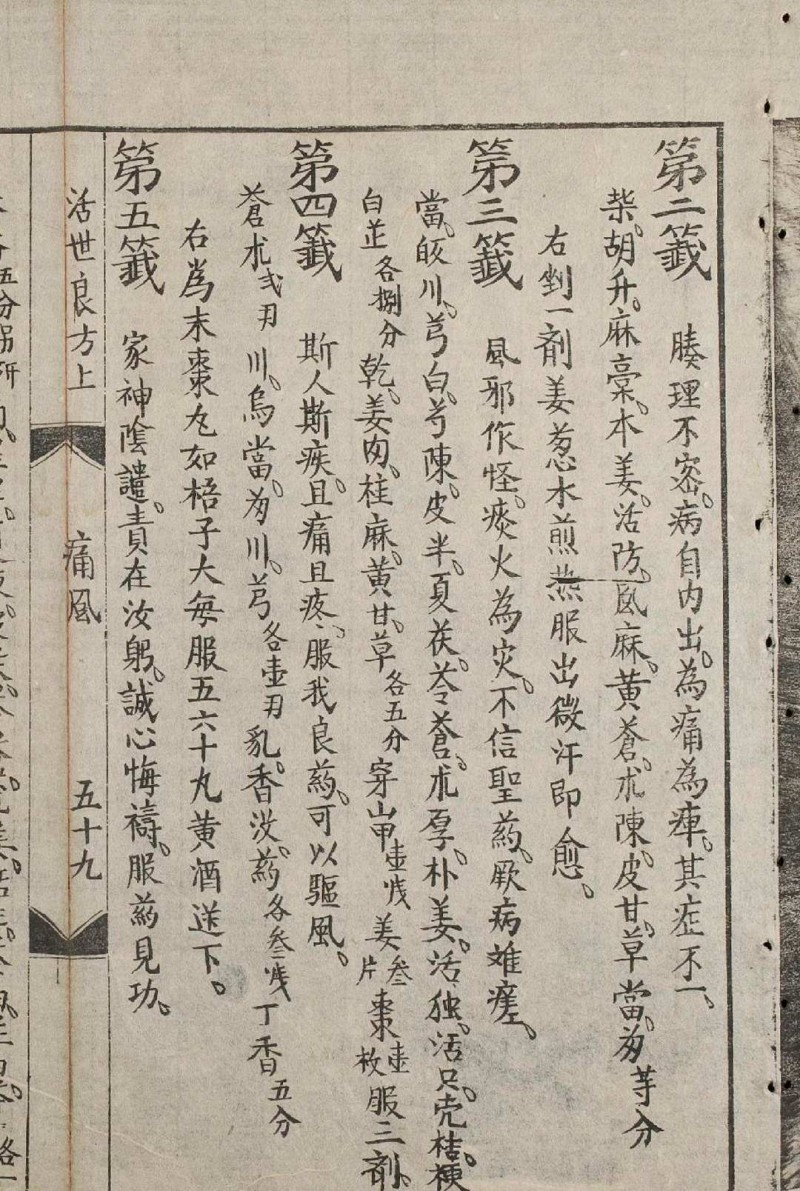 第二籤 腠理不密。病自内出。為痛為痺。其症不一、
柴。胡升。麻藁。本姜。活防。風麻。黄蒼。朮陳。皮甘。草當。芍等分
右剉一劑姜葱水煎熱服出微汗即愈。
第三籤 風邪作怪。痰火為灾。不信聖药。厥病难瘥。
當。皈川。芎白。芍陳。皮半。夏茯。苓蒼。朮厚。朴姜。活独。活只。壳桔。梗
白芷各捌分乾。姜肉。桂麻。黄甘。草各五分穿山甲壹戋姜叁片棗壹枚服三劑。
第四籤 斯人斯疾。且痛且疼。服我良药。可以驅風。
蒼朮弍刄川。烏當。芍川。芎各壹刄乳。香没。药各叁戋丁香五分
右為末棗丸如梧子大每服五六十丸黄酒送下。
第五籤 家神陰譴。責在汝躬。誠心悔禱。服药見功。
活世良方上 痛風 五十九